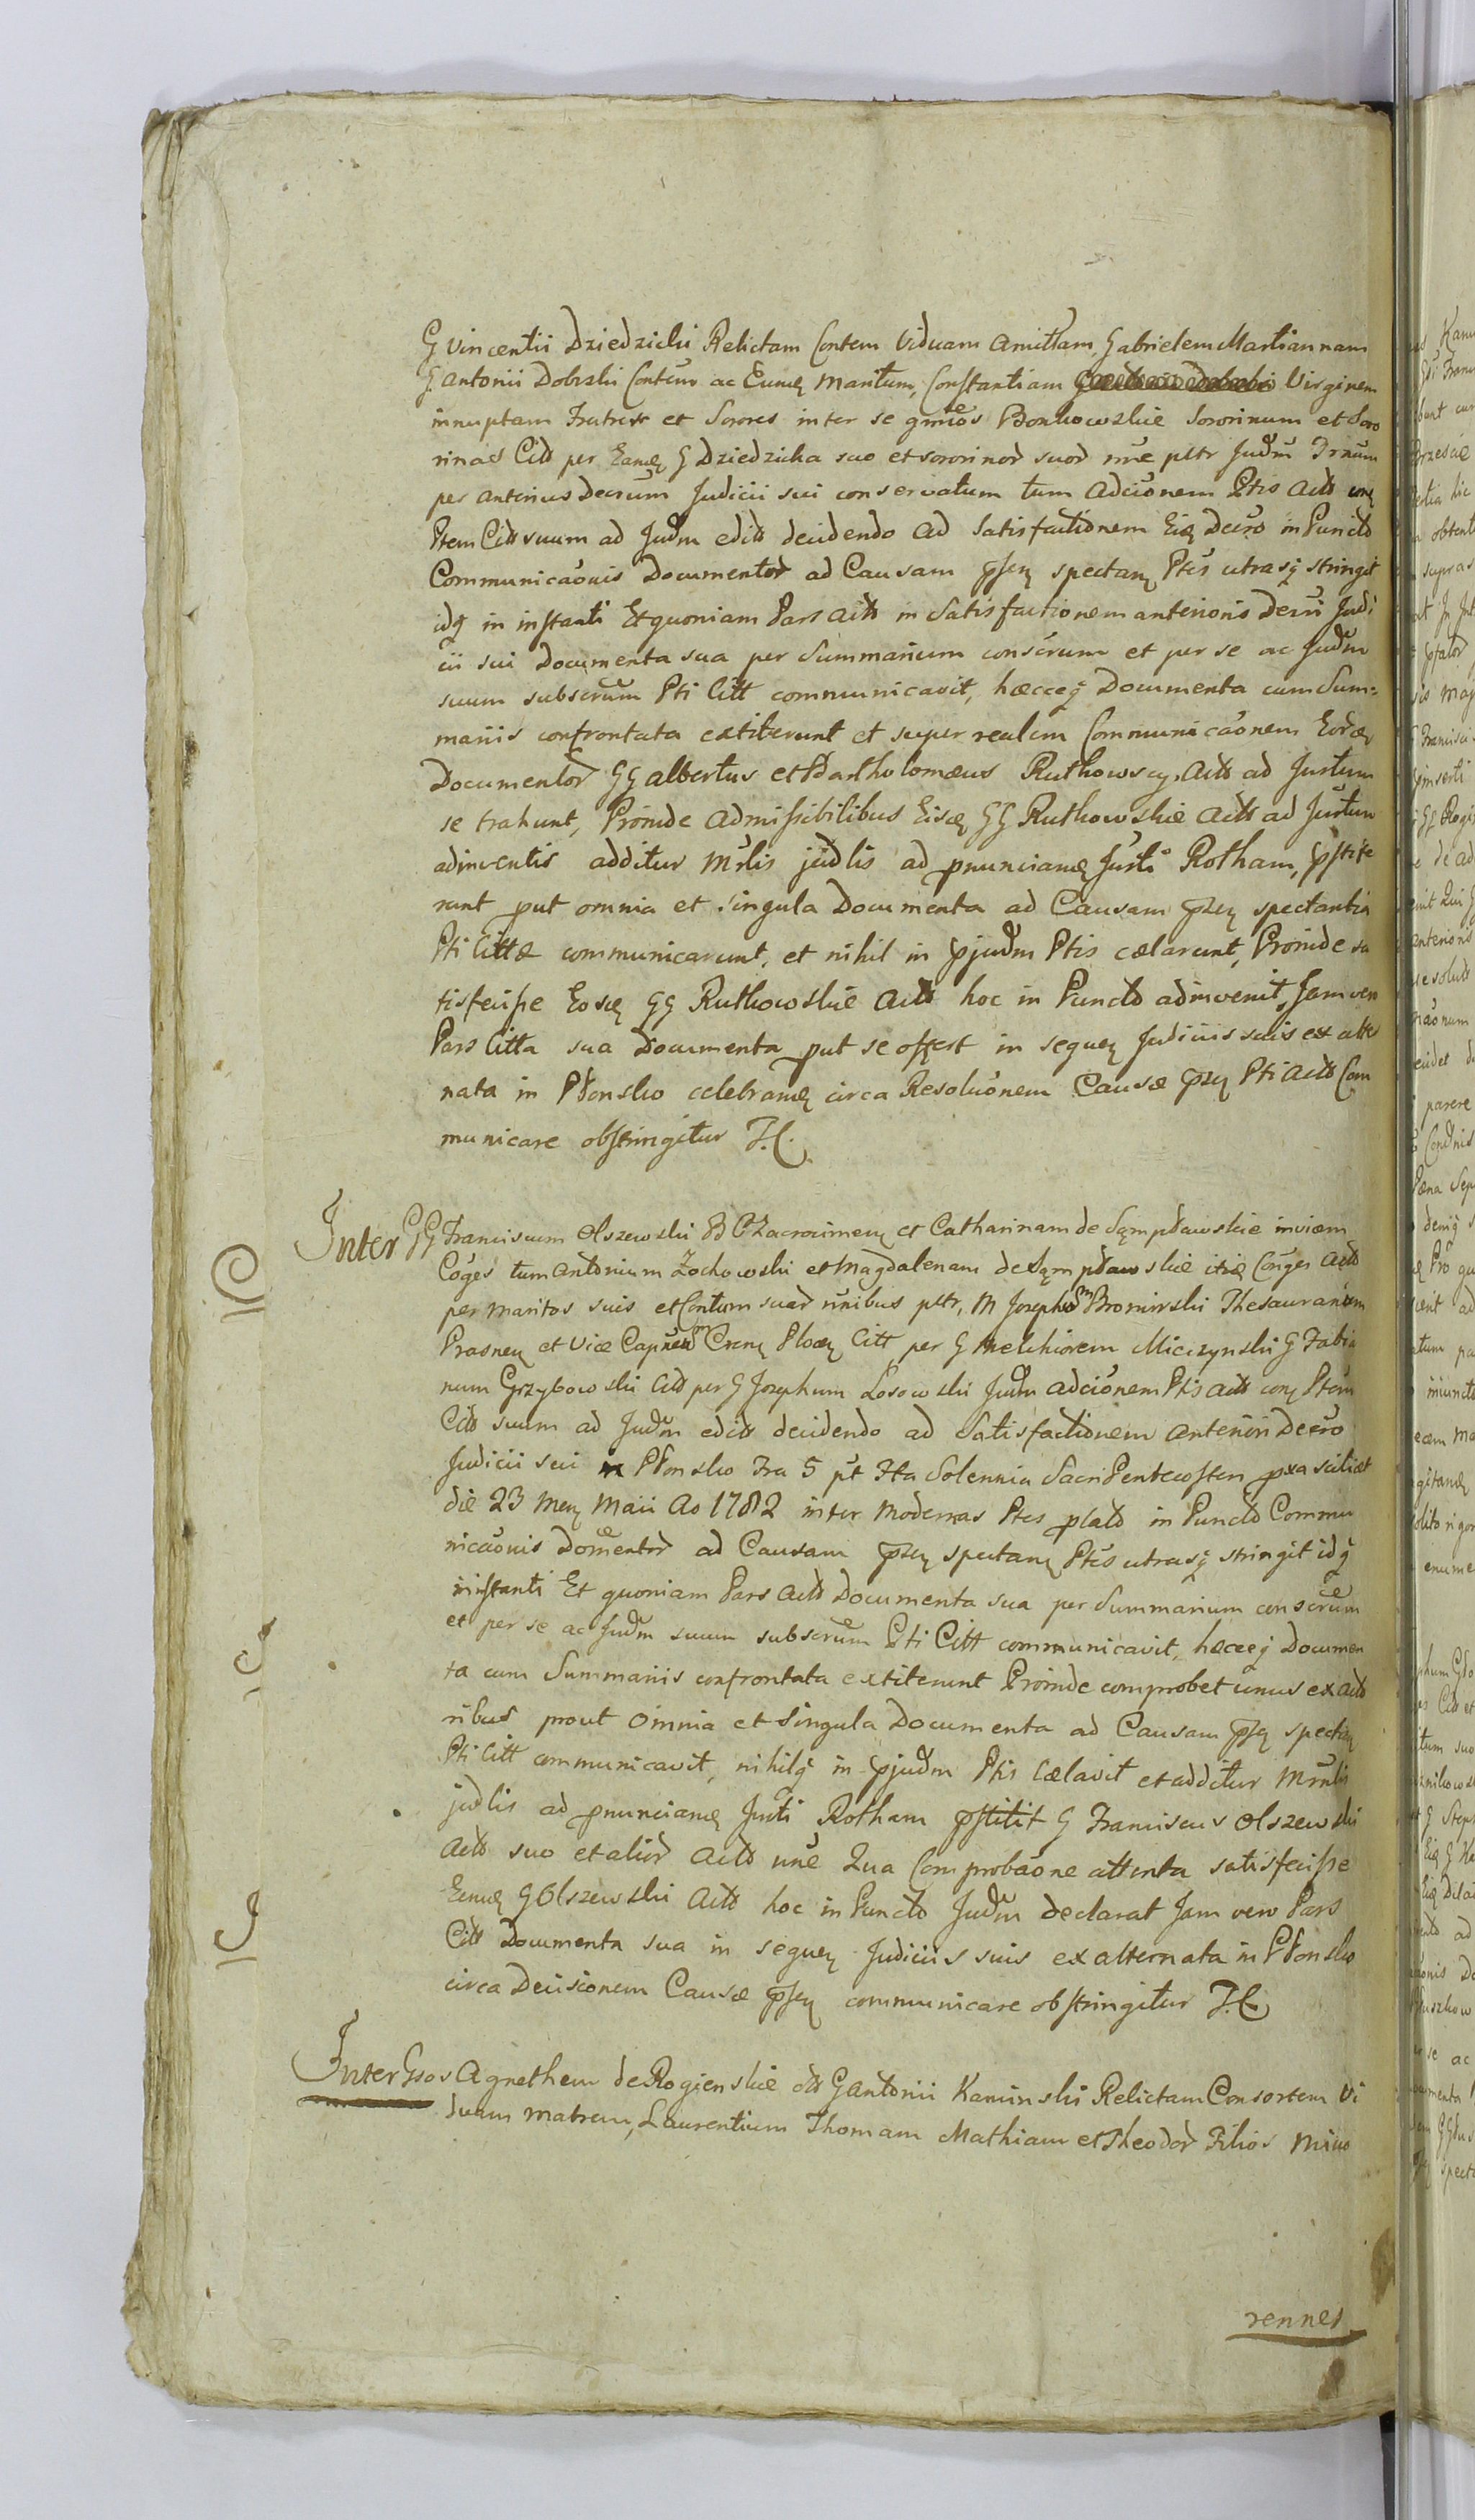 G Vincentii Dziedzicki Relictam Contem Viduam amittam Gabrielem Martiannam
G. Antonii Dobrski Contem ac Eumq Maritum, Constantiam Virginem
innuptam Fratres et Sorores inter se gmos Bonkowskie Sororinum et Soro
rinas Citt per Eamq G Dziedzicka suo et sororinor suor nne pltr Judm Trnum
per anterius Decrum Judicii sui conservatum tum Adcionem Ptis Actt conq
Ptem Citt suum ad Judm editt decidendo ad Satisfactionem Eiq Decro in Puncto
Communicaonis Documentor ad Causam pssq spectanq Ptes utrasq stringit
idq in instanti Et quoniam Pars Actt in Satisfactionem anterioris Decri Judi
cii sui Documenta sua per Summarium conscrum et per se ac Judm
suum subscrum Pti Citt communicavit, hæcceq Documenta cum Sum=
mariis confrontata extiterunt et super realem Communicaonem Eorq
Documentor GG Albertus et Bartholomæus Rutkowscy Actt ad Jurtum
se trahunt, Proinde admissibilibus Eisq GG Rutkowskie Actt ad Jurtum
adinventis additur Mrlis judlis ad pnuncianq Jurti Rotham, pstite
runt put omnia et singula Documenta ad Causam pssq spectantia
Pti Cittæ communicarunt, et nihil in pjudm Ptis cælarunt, Proinde sa
tisfecisse Eosq GG Rutkowskie Actt hoc in Puncto adinvenit, Jam vero
Pars Citta sua Documenta put se offert in sequen Judiciis suis ex alter
nata in Płonsko celebranq circa Resolucionem Causæ pssq Pti Actt Com
municare obstringitur J.C.
Inter GG Franciscum Olszewski B C Zacrocimen et Catharinam de Sąmpławskie invicem
Coges tum Antonium Żochowski et Magdalenam de Sąmpławskie itiq Conges Actt
per Maritos suis et Contum suar nnibus pltr, M Josephum Bromirski Thesaurarium
Prasnen et Vice Capneum Crenq Plocen Citt per G Melchiorem Miczynski G Fabia
num Grzybowski Citt per G Josephum Łosowski Judm adcionem Ptis Actt conq Ptem
Citt suum ad Judm editt decidendo ad Satisfactionem anteriori Decro
Judicii sui in Płonsko Fra 5 pt Fta Solennia Sacri Pentecosten pxa scilicet
die 23 Menq Maii Ao 1782 inter modernas Ptes platt in Puncto Commu
nicaonis Domentor ad Causam pssq spectanq Ptes utrasq stringit idq
instanti Et quoniam Pars Actt Documenta sua per Summarium conscrum
et per se ac Judm suum subscrum Pti Citt communicavit, hæcceq Documen
ta cum Summariis confrontata extiterunt Proinde comprobet unus ex Acto
ribus prout omnia et singula Documenta ad Causam pssq spectanq
Pti Citt communicavit, nihilq in pjudm Ptis Cælavit et additur Mrnlis
judlis ad pnuncianq Jurti Rotham pstitit G Franciscus Olszewski
Actt suo et alior Actt nne Qua Comprobaone attenta satisfecisse
Eumq G Olszewski Actt hoc in Puncto Judm declarat Jam vero Pars
Citt Documenta sua in sequen Judiciis suis ex alternata in Płonsko
circa Decisionem Causæ pssq communicare obstringitur J.C.
Inter Gsos Agnethem de Rogienskie ott G Antonii Kaminski Relictam Consortem Vi
duam matrem, Laurentium Thomam Mathiam et Theodor Filios mino
rennes